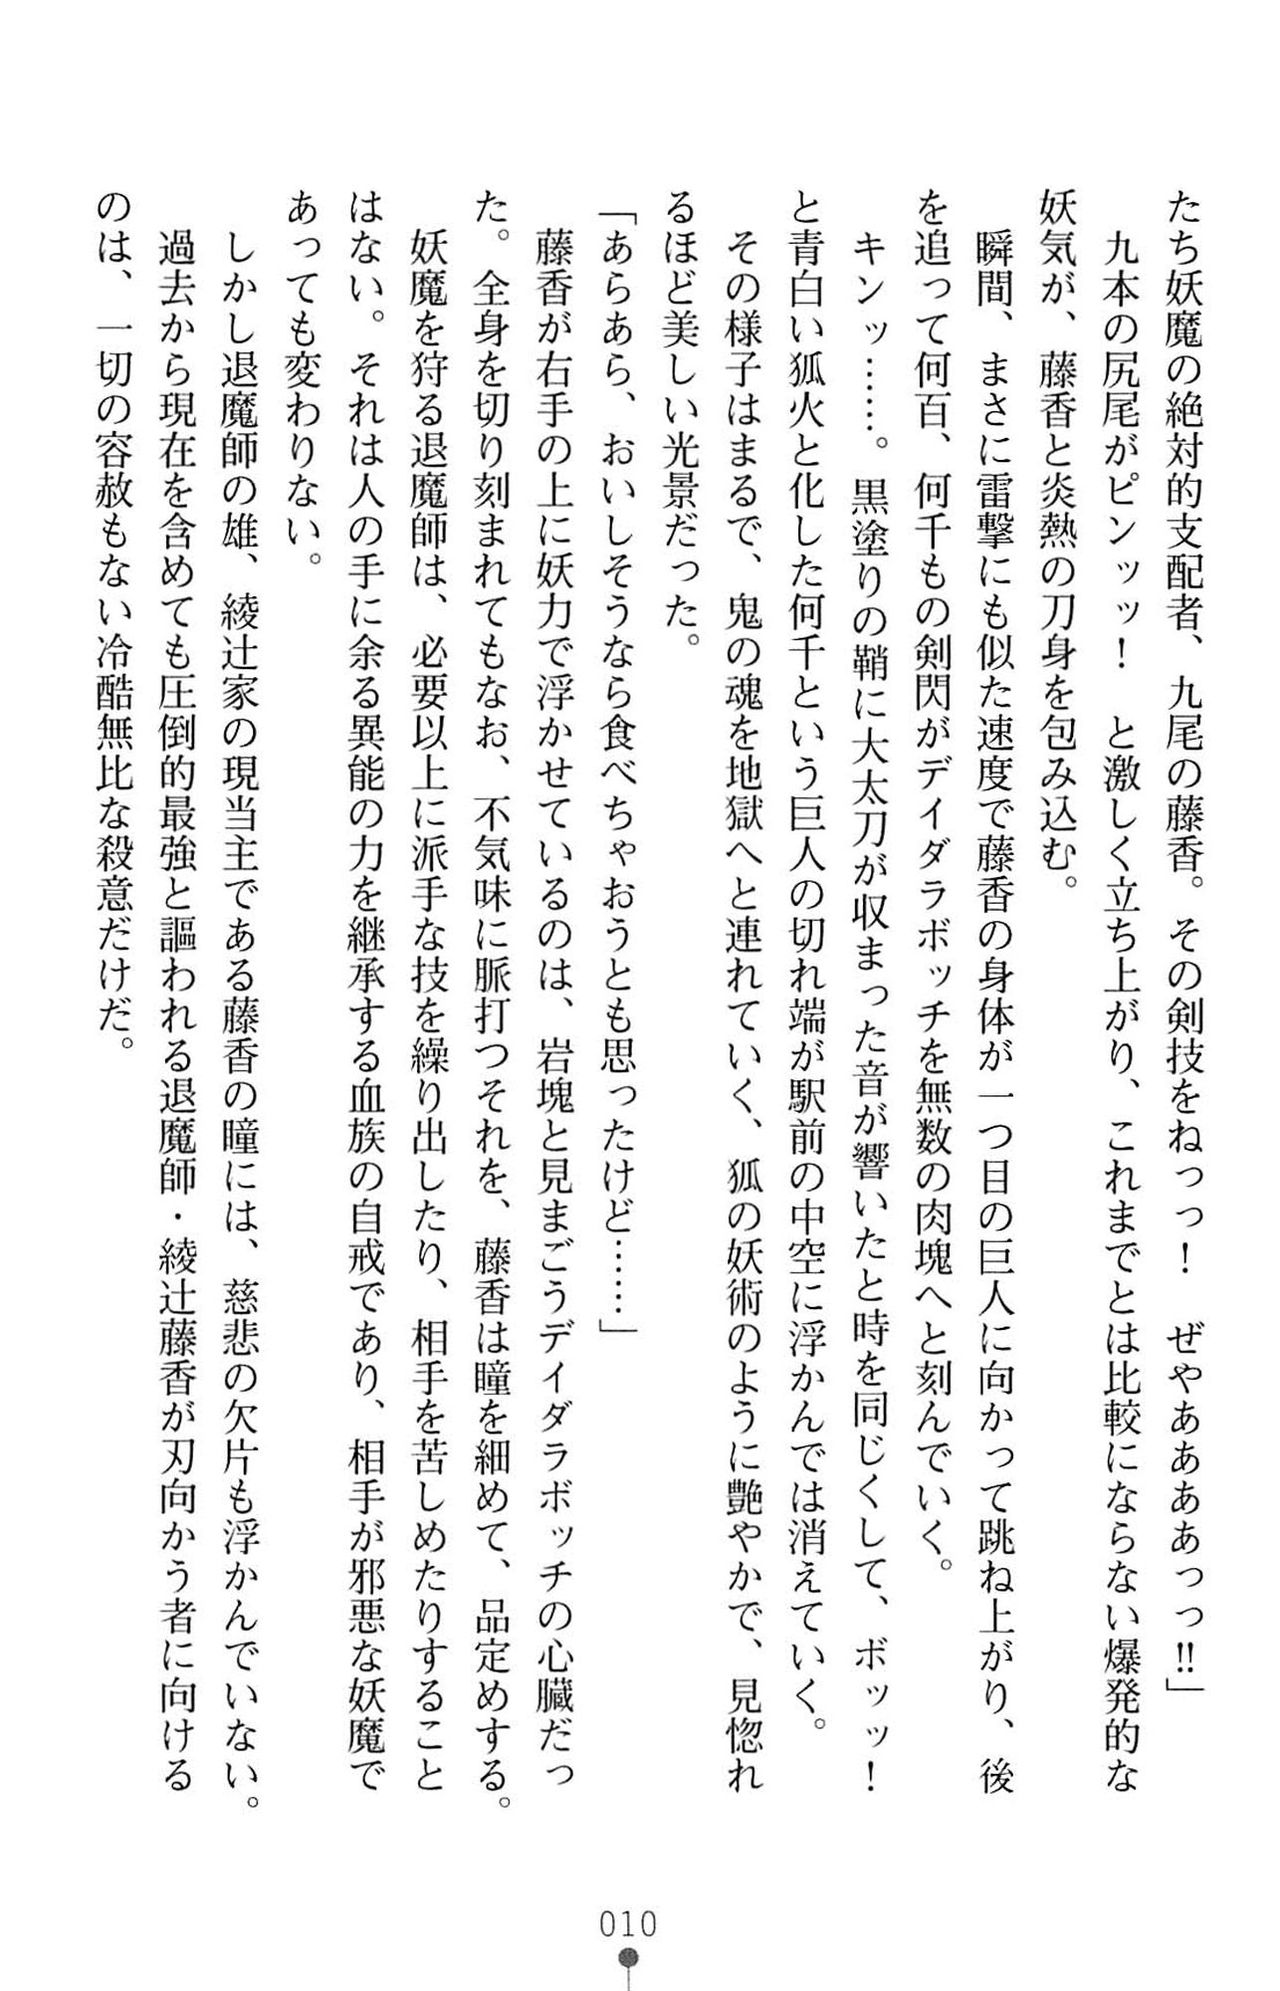 たち妖魔の絶対的支配者、九尾の藤香。その剣技をねっっ！　ぜやああああっっ!!」
九本の尻尾がピンッッ！　と激しく立ち上がり、これまでとは比較にならない爆発的な
妖気が、藤香と炎熱の刀身を包み込む。
瞬間、まさに雷撃にも似た速度で藤香の身体が一つ目の巨人に向かって跳ね上がり、後
を追って何百、何千もの剣閃がデイダラボッチを無数の肉塊へと刻んでいく。
キンッ……。黒塗りの鞘に大太刀が収まった音が響いたと時を同じくして、ボッッ！
と青白い狐火と化した何千という巨人の切れ端が駅前の中空に浮かんでは消えていく。
その様子はまるで、鬼の魂を地獄へと連れていく、狐の妖術のように艶やかで、見惚れ
るほど美しい光景だった。
「あらあら、おいしそうなら食べちゃおうとも思ったけど……」
藤香が右手の上に妖力で浮かせているのは、岩塊と見まごうデイダラボッチの心臓だっ
た。全身を切り刻まれてもなお、不気味に脈打つそれを、藤香は瞳を細めて、品定めする。
妖魔を狩る退魔師は、必要以上に派手な技を繰り出したり、相手を苦しめたりすること
はない。それは人の手に余る異能の力を継承する血族の自戒であり、相手が邪悪な妖魔で
あっても変わりない。
しかし退魔師の雄、綾辻家の現当主である藤香の瞳には、慈悲の欠片も浮かんでいない。
過去から現在を含めても圧倒的最強と謳われる退魔師・綾辻藤香が刃向かう者に向ける
のは、一切の容赦もない冷酷無比な殺意だけだ。
010